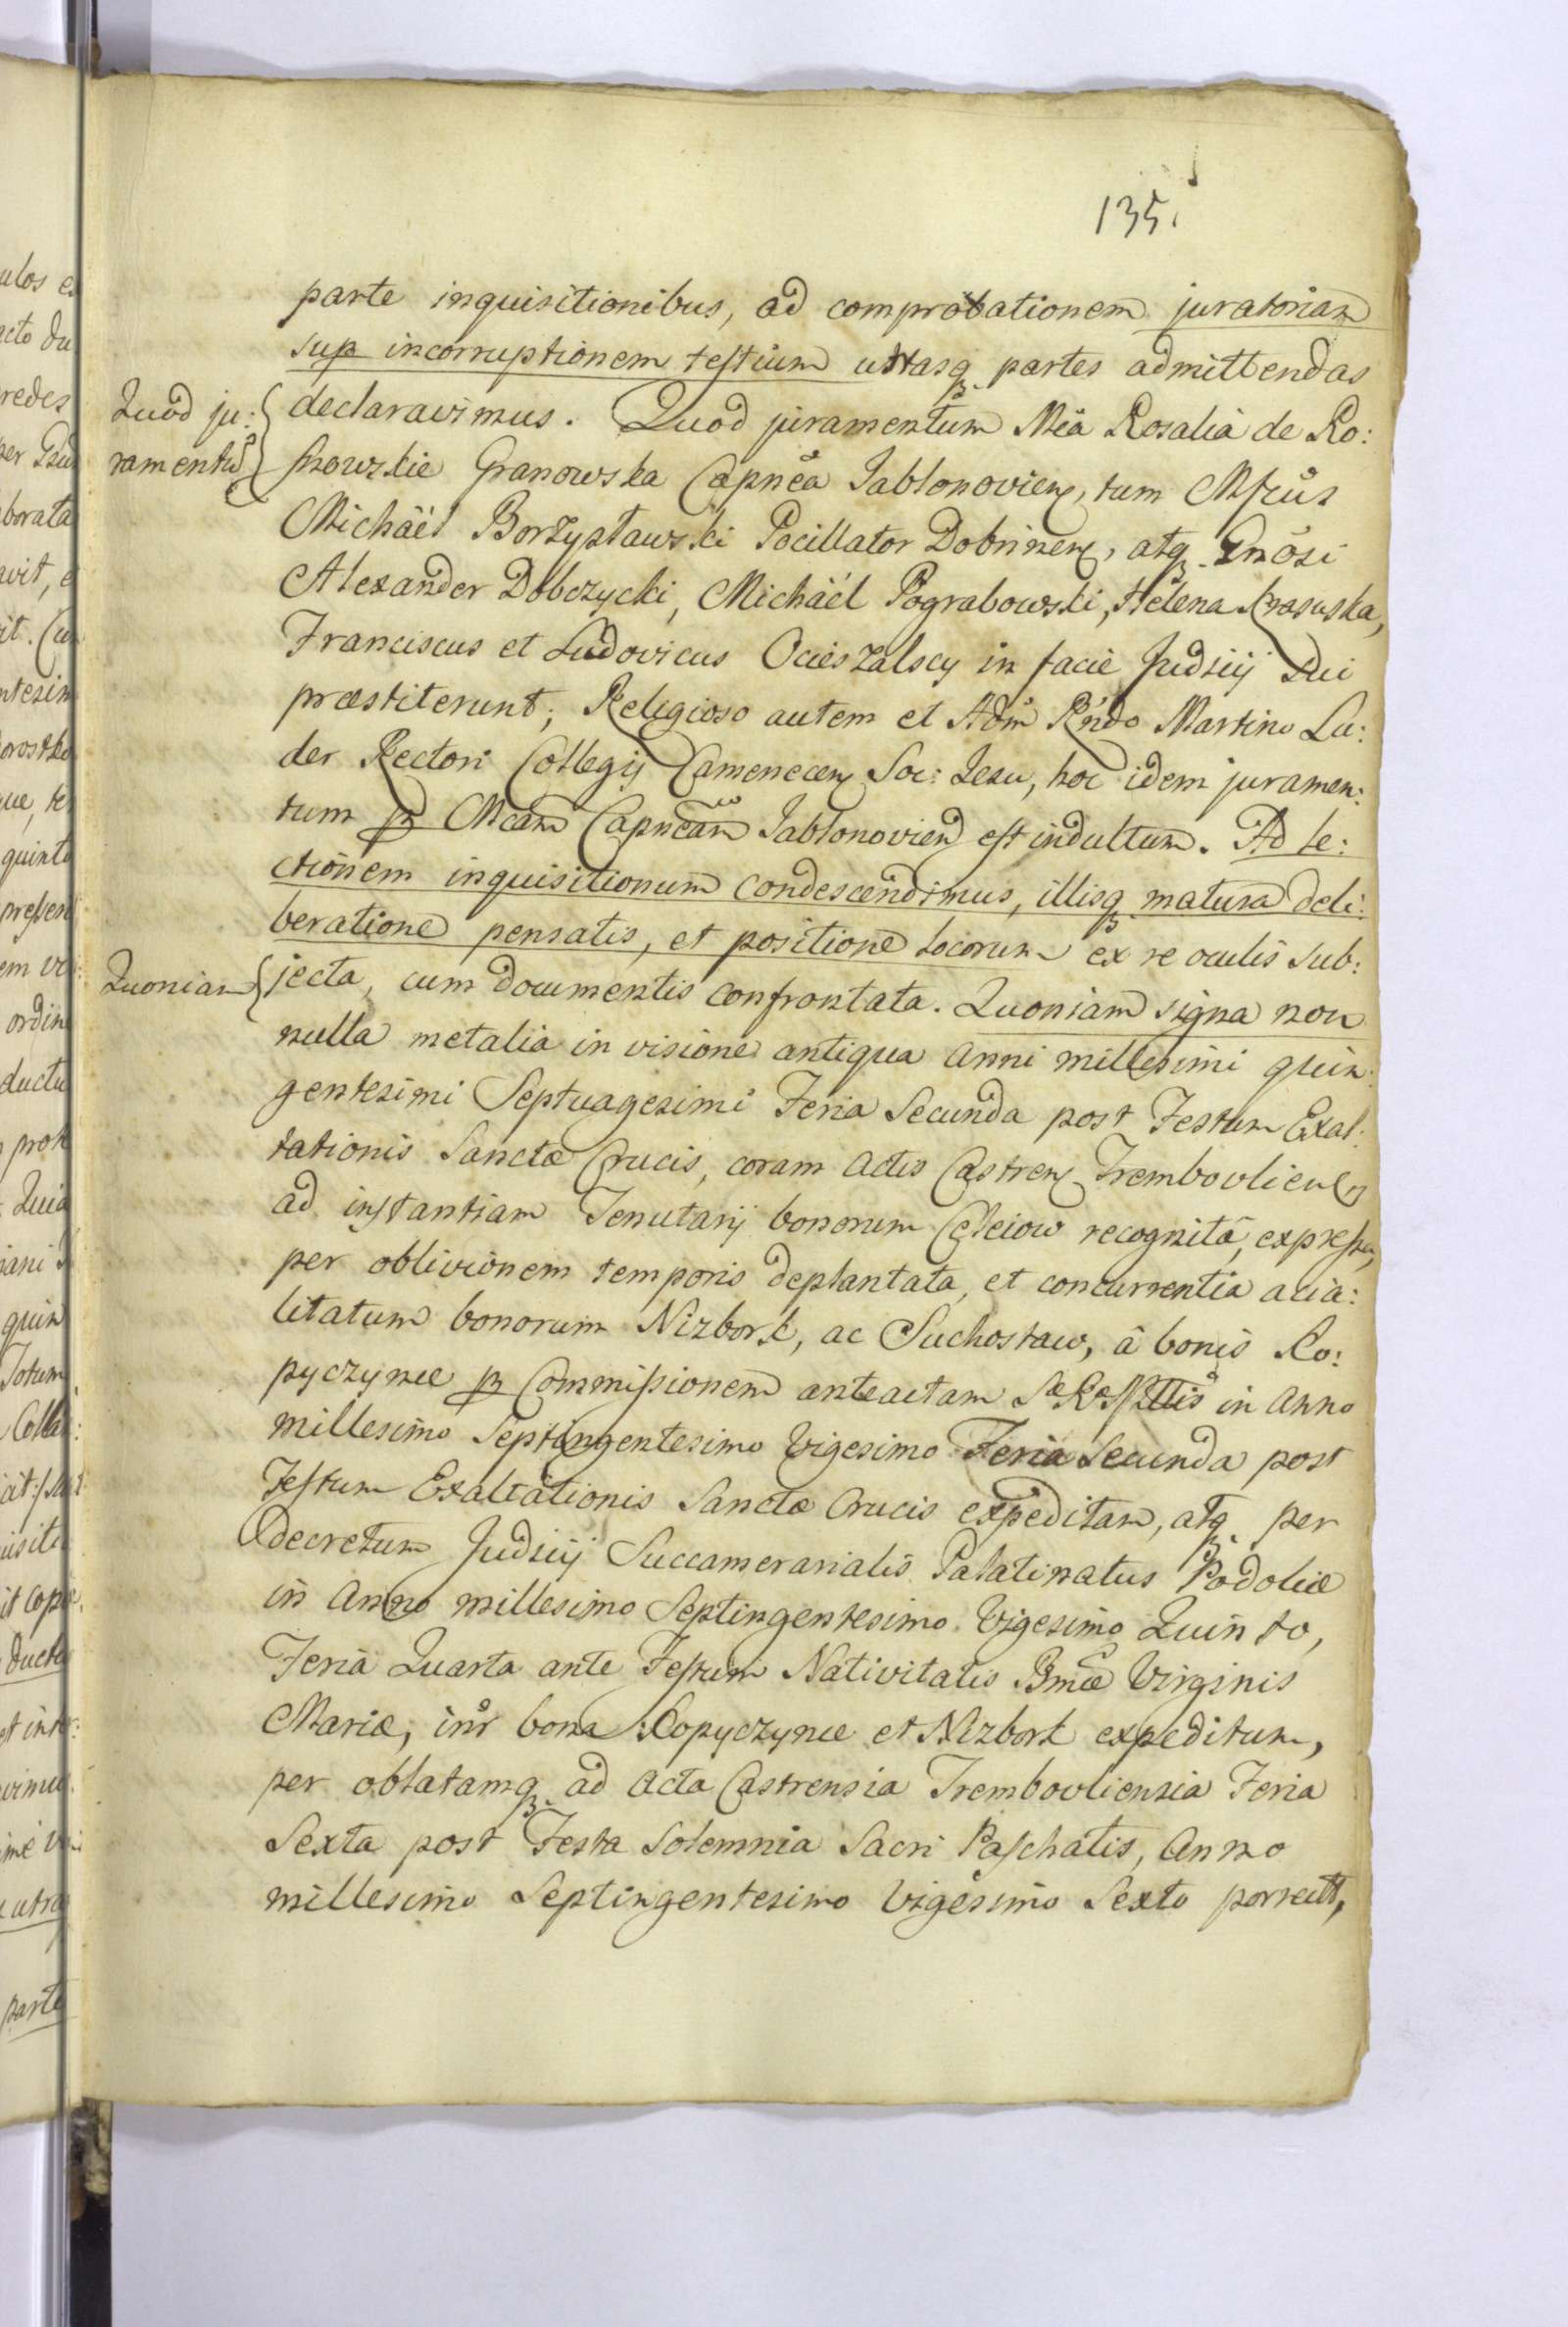 135.
parte inquisitionibus, ad comprobationem juratoriam
sup incorruptionem testium utrasq partes admittendas
Quod ju: declaravimus. Quod juramentum Mca Rosalia de Ro:
ramentũ szkowskie Granowska Capnea Jablonovien, tum Mfcus
Michäel Borzysławski Pocillator Dobrinen, atq Gnosi
Alexander Dobczycki, Michäel Pograbowski, Helena Krasuska,
Franciscus et Ludovicus Ocieszalscy in facie Judicij Sui
præstiterunt; Religioso autem et Adm Rndo Martino Lu:
der Rectori Collegij Camenecen Soc: Jesu, hoc idem juramen:
tum p Mcam Capneam Jablonovien est indultum. Ad le:
ctionem inquisitionum condescendimus, illisq matura deli:
beratione pensatis, et positione locorum ex re oculis sub:
Quoniam jecta, cum documentis confrontata. Quoniam signa non
nulla metalia in visione antiqua Anni millesimi quin:
gentesimi Septuagesimi Feria Secunda post Festum Exal:
tationis Sanctæ Crucis, coram Actis Castren Trembovlien
ad instantiam Tenutarij bonorum Celeiow recognita, expressa,
per oblivionem temporis deplantata, et concurrentia acia:
litatum bonorum Nizbork, ac Suchostaw, â bonis Ko:
pyczynce p Commissionem anteactam in Anno
millesimo Septingentesimo Vigesimo Feria Secunda post
Festum Exaltationis Sanctæ Crucis expeditam, atq per
decretum Judicij Succamerarialis Palatinatus Podoliæ
in Anno millesimo Septingentesimo Vigesimo Quinto,
Feria Quarta ante Festum Nativitatis Bmæ Virginis
Mariæ, intr bona Kopyczynce et Nizbork expeditum,
per oblatamq ad Acta Castrensia Trembovliensia Feria
Sexta post Festa Solemnia Sacri Paschatis, Anno
millesimo Septingentesimo Vigesimo Sexto porrect,